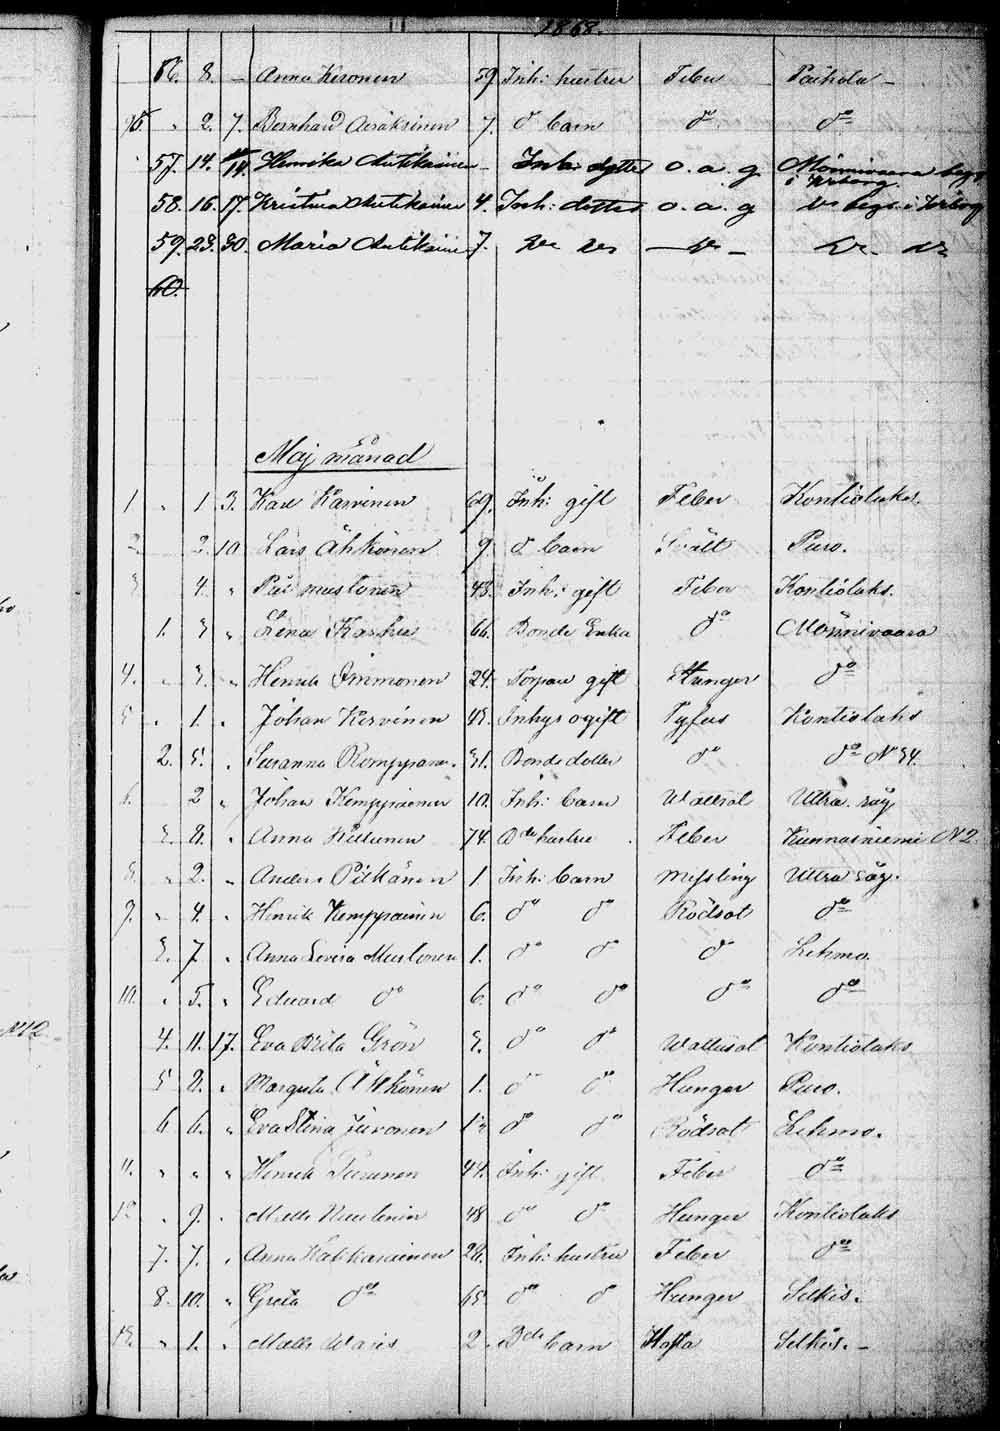 1868.
56. 8. – Anna Keronen 59. Inh: hustru Feber Paihola –
95. " 2. 7. Bernhard Aeräksinen 7. d barn do do
57. 14. 14. Henrika Antikainen – Inh: dotter o. a. g Mönnivaara begr. i Wiborg
58. 16. 17. Kristina Antikainen 4. Inh: dotter o. a. g do begr. i Wiborg
59. 23. 30. Maria Antikainen 7. do do do do
60.
Maj månad
1 " 1 3. Karl Karvinen 69. Inh: gift Feber Kontiolaks.
2. 2. 10 Lars Ähkönen 9. d barn Svält Puro.
3 4. " Pål Mustonen 43. Inh: gift Feber Kontiolaks.
1. 3 " Lena Karhu 66. Bonde Enka do Mönnivaara
4. " 3. " Henrik Immonen 24. Torpare gift Hunger do
5 " 1. " Johan Kervinen 43. Inhys ogift Tyfus Kontiolaks
2. 5. " Susanna Romppanen 31. Bonde dotter do do No 34.
6. 2 " Johan Kemppainen 10. Inh: barn Wattsot Utra såg
3. 8. " Anna Kettunen 74. Bde hustru Feber Kunnasniemi N2.
8. " 2. " Anders Pitkänen 1. Inh: barn Messling Uttra såg.
9. " 4. " Henrik Kemppainen 6. do do Rödsot do
3. 7 " Anna Lovisa Mustonen 1. do do do Lehmo.
10. " 5. " Eduard do 6. do do do do
4. 11. 17. Eva Brita Grön 3. do do Wattusot Kontiolaks
5 2. " Margreta Ähkönen 1. do do Hunger Puro.
6 6. " Eva Stina Juvonen 1½ do do Rödsot Lehmo.
11. " " " Henrik Turunen 44. Inh: gift Feber do
12 " 9. " Matts Nuutinen 48 do do Hunger Kontiolaks
7. 7. " Anna Kakkarainen 28. Inh: hustru Feber do
8. 10. " Greta do 65. do do Hunger Selkis.
13. " 1. " Matts Waris 2. Bde barn Hosta Selkis. –
N12.